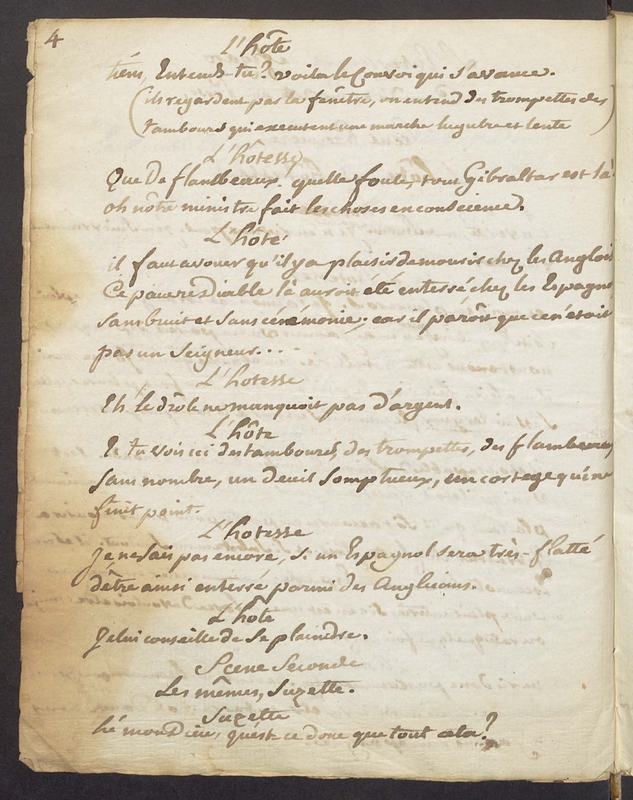 4
L'hôte
tiens, Entends tu? voila le Convoi qui s'avance.
(ils regardent par la fenêtre, on entend des trompettes des
tambours qui executent une marche lugubre et lente)
L'hôtesse
Que De flambeaux. quelle foule, tout Gibraltar est là!
oh nôtre ministre fait les choses en conscience.
L'hôte
il faut avouer qu'il y a plaisir de mourir chez les Anglois
Ce pauvre Diable là auroit été enterré chez les Espagn
sans bruit et sans cérémonie; car il parôit que ce n'étoit
pas un Seigneur...
L'hotesse
Eh! le drôle ne manquoit pas d'argent.
L'hôte
Et tu vois ici des tambours, des trompettes, des flambeaux
sans nombre, un deuil somptueux, un cortege qui ne
finit point.
L'hotesse
Je ne sais pas encore, si un Espagnol sera très-flatté
d'être ainsi enterré parmi des Anglicans.
L'hôte
Je lui conseille de se plaindre.
Scene Seconde
Les mêmes, Suzette.
Suzette
hé mon dieu, qu'est ce donc que tout cela?